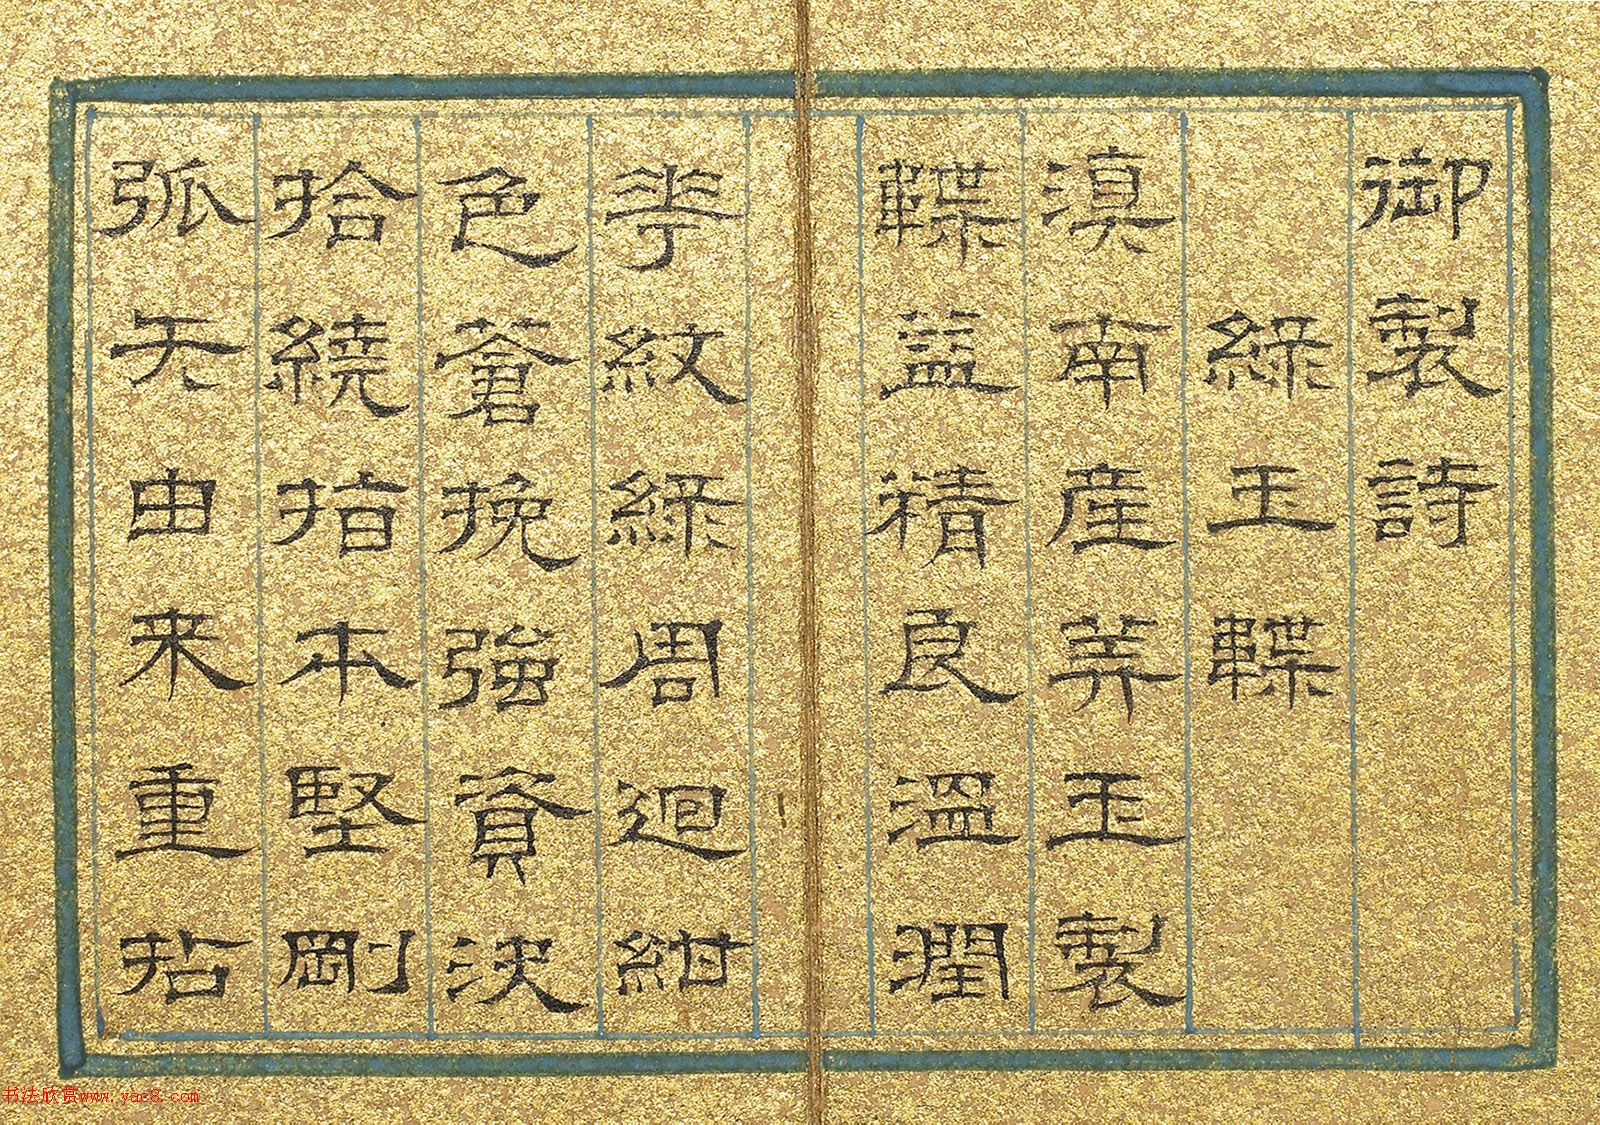 御製詩
綠玉韘
滇南產美玉製
韘益精良溫潤
華紋綠周迴紺
色蒼挽強資決
拾繞指本堅剛
弧矢由来重拈
书法欣赏www.yac8.com